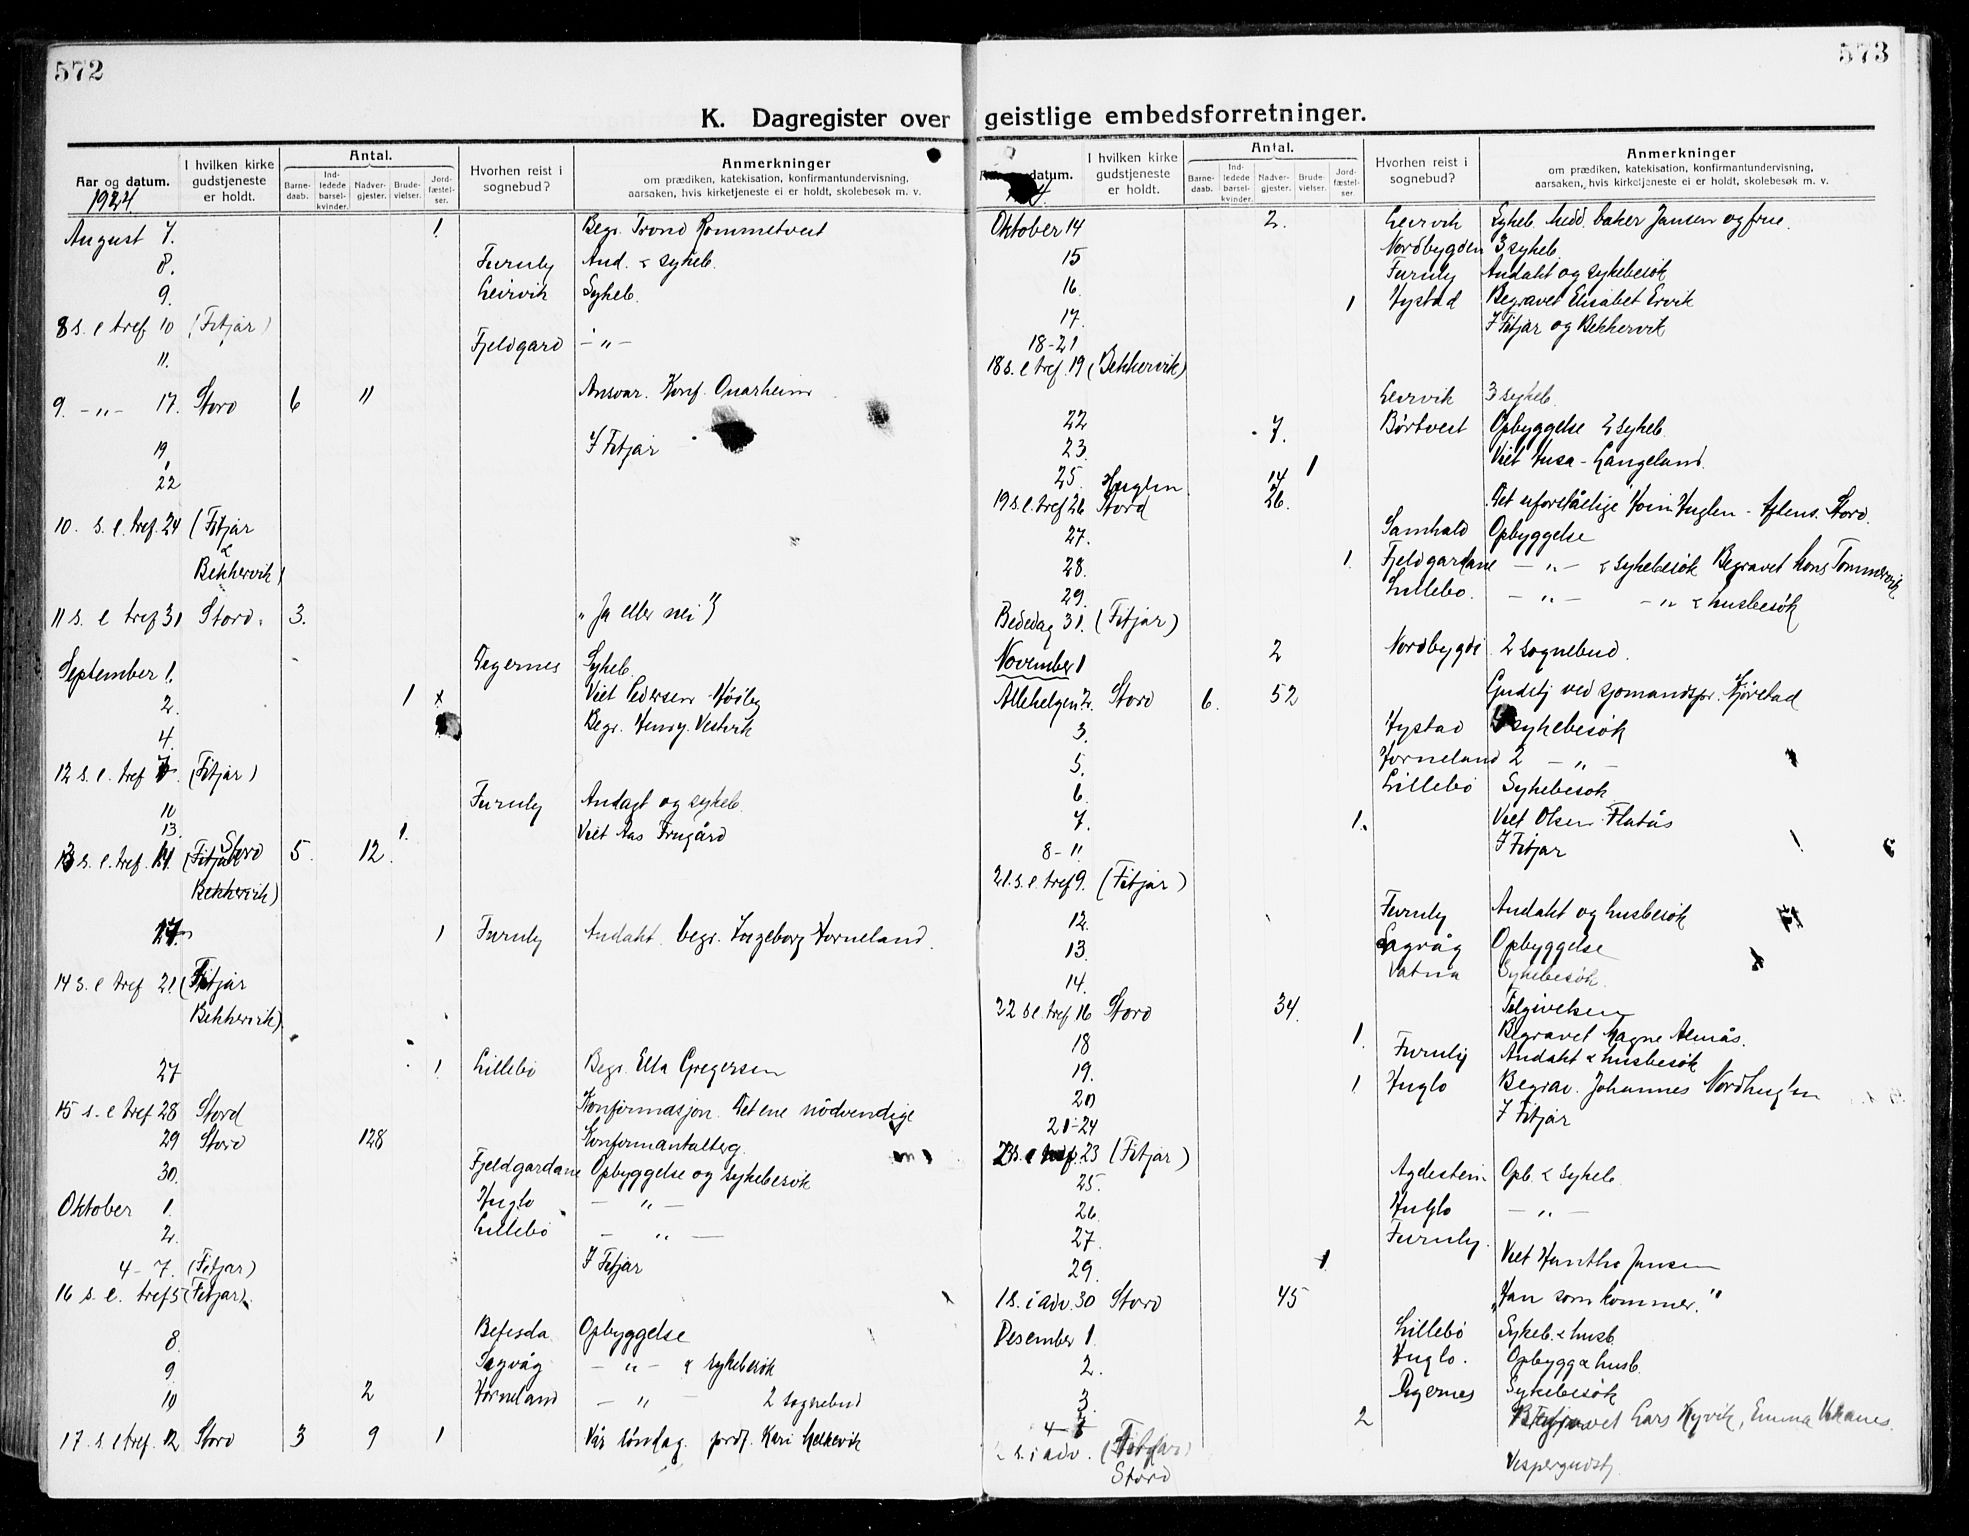 572
K. Dagregister over
Aar og datum.
1924
I hvilken kirke gudstjeneste er holdt.
Antal.
Barnedaab.
Indledede barselkvinder.
Nadvergjester.
Brudevielser.
Jordfæstelser.
Hvorhen reist i sognebud?
Anmerkninger
om prædiken, katekisation, konfirmantundervisning,
aarsaken, hvis kirketjeneste ei er holdt, skolebesøk m. v.
August 7. 1 Begr. Trond Rommetveit
8. Furuly And. & sykeb.
9. Leirvik Sykeb.
8 s. e tref 10 (Fitjar)
11. Fjeldgard — " —
9. — " — 17. Stord 6 11 Ansvar. Konf.
19 I Fitjar
22
10. s. e. tref. 24 (Fitjar
&
Bekkervik)
11 s. e tref 31 Stord. 3. "Ja eller nei"
September 1. Digernes Sykeb.
2. 1 Viet Pedersen
4. Begr. Henry Vestvik
12 s. e. tref 7. (Fitjar)
10 Furuly Andagt og sykeb.
13. 1. Viet Aas
13 s. e. tref. 14. Stord 5. 12.
Bekkervik)
17. 1 Furuly Andakt. begr. Ingeborg Horneland.
14 s. e tref 21. (Fitjar
Bekkervik)
27 1 Lillebø Begr. Ella Gregersen
15 s. e tref 28 Stord Konfirmasjon. Det ene nödvendige
29 Stord 128 Konfirmantalterg.
30. Fjeldgardane Opbyggelse og sykebesök
Oktober 1. Huglo — " —
2. Lillebö — " —
4 – 7. (Fitjar) I Fitjar
16 s. e. tref 5 (Fitjar).
8. Betesda Opbyggelse
9. Sagvåg — " — & sykebesök
10 2 Horneland — " — 2 sognebud
17. s. e tref. 12 Stord 3 9 1 Vår söndag. jordf. Kari Helkevik
573
geistlige embedsforretninger.
datum.
I hvilken kirke gudstjeneste er holdt.
Antal.
Barnedaab.
Indledede barselkvinder.
Nadvergjester.
Brudevielser.
Jordfæstelser.
Hvorhen reist i sognebud?
Anmerkninger
om prædiken, katekisation, konfirmantundervisning,
aarsaken, hvis kirketjeneste ei er holdt, skolebesøk m. v.
Oktober 14 2. Leirvik Sykeb. hedd. baker Jansen og frue.
15 Nordbygden 3 sykeb.
16. Furuly Andakt og sykebesök
17. 1 Hystad Begravet Elisabet Ervik
18–21 I Fitjar og Bekkervik
18 s. e tref. 19 (Bekkervik)
22 Leirvik 3 sykeb.
23. 7. Börtveit Opbyggelse 2 sykeb.
25. 1 Viet Langeland.
Huglen 14
19 s. e. tref 26 Stord 26. Det uforståelige Huglen – Aftens. Stord.
27. Samhald Opbyggelse
28. 1. Fjeldgardane — " — & sykebesök Begravet Hans Tommervik
29. Lillebö. — " — — " & husbesök
Bededag 31. (Fitjar)
November 1 2 Nordbygdi 2 sognebud.
Allehelgen 2. Stord 6. 52 Gudstj ved sjomandspr.
3. Hystad sykebesök
5. Horneland 2 — " —
6. Lillebö Sykebesök
7. 1. Viet Olsen Flatås
8–11. I Fitjar
21. s. e. tref 9. (Fitjar)
12. Furuly Andakt og husbesök
13. Sagvåg Opbyggelse
14. Vatna Sykebesök.
22 s e. tref 16 Stord 34. Tilgivelsen
18 1. Begravet Magne Almås.
19. Furuly Andakt & husbesök
20 1 Huglo Begrav. Johannes Nordhuglen
21–24 I Fitjar
23 s. e tref. 23 (Fitjar)
25. Agdestein Opb. & sykeb.
26. Huglo — " —
27. Furuly.
29. 1 Viet Jansen
1 s. i adv. 30 Stord 45 "Han som kommer."
Desember 1. Lillebö Sykeb. & husb.
2. Huglo. Opbygg & husb.
3. Digernes Sykebesök
4 2 Begravet Lars Kyvik, Emma
s. i adv. (Fitjar)
Stord Vespergudstj.